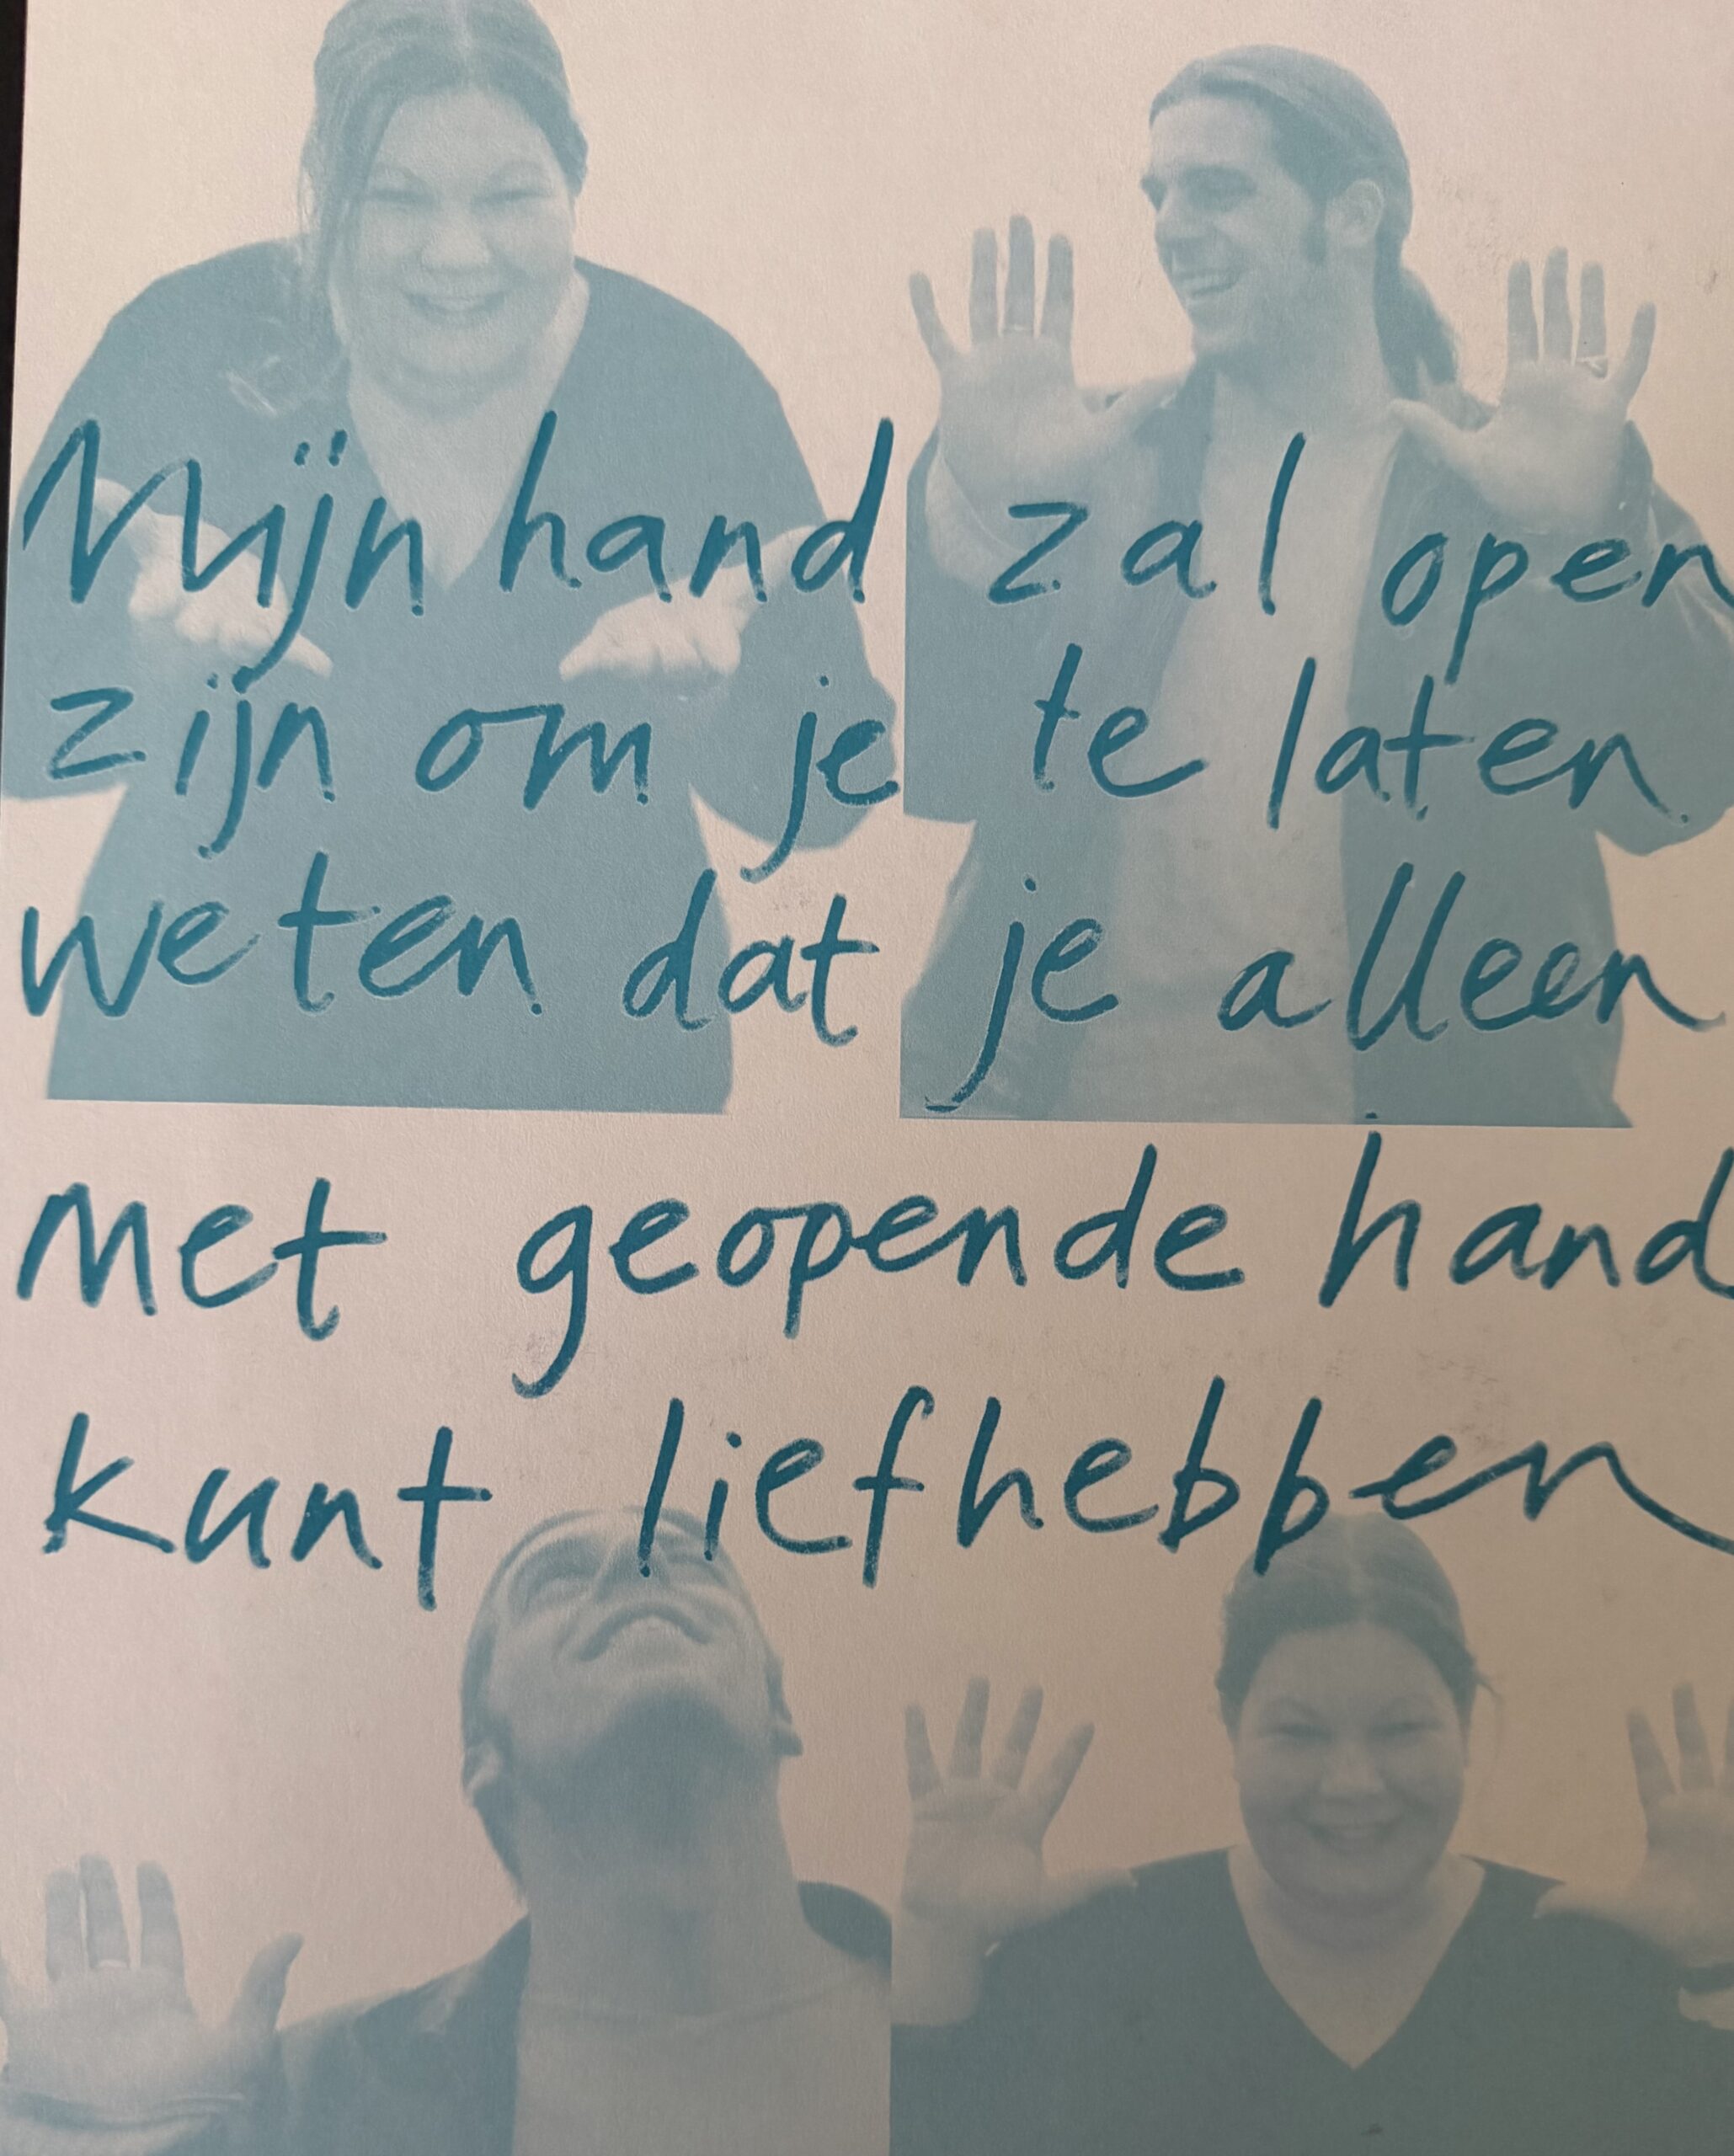 Mijn hand zal open
zijn om je te laten
weten dat je alleen
met geopende hand
kunt liefhebben